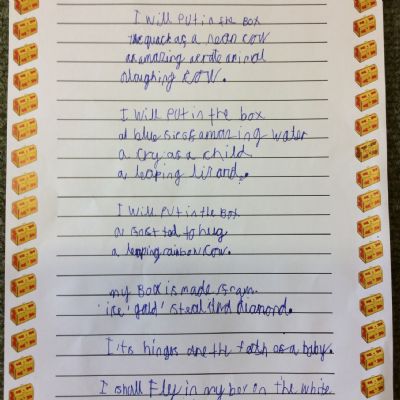 I will put in the box
the quack as a neon cow
an amazing animal
a laughing ROW.
I will put in the box
a blue amazing water
a cry as a child
a leaping lizand.
I will put in the box
a to hug
a leaping rainbow cow.
my Box is made
ice 'gold' steal and diamond.
I ts hinges are the teeth as a baby.
I shall Fly in my box on the white